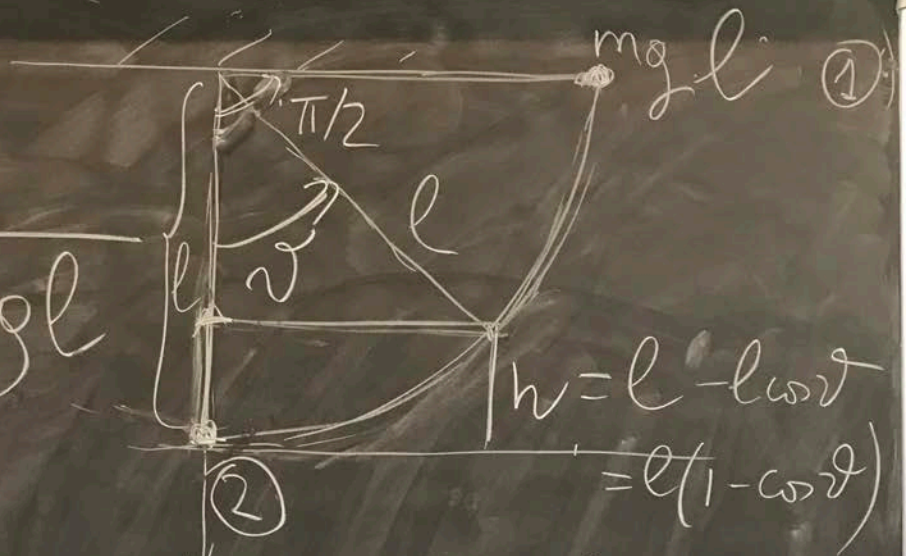 mgl ①
π/2
l
ϑ
l
gl
h = l - l cosϑ
= l(1 - cosϑ)
②